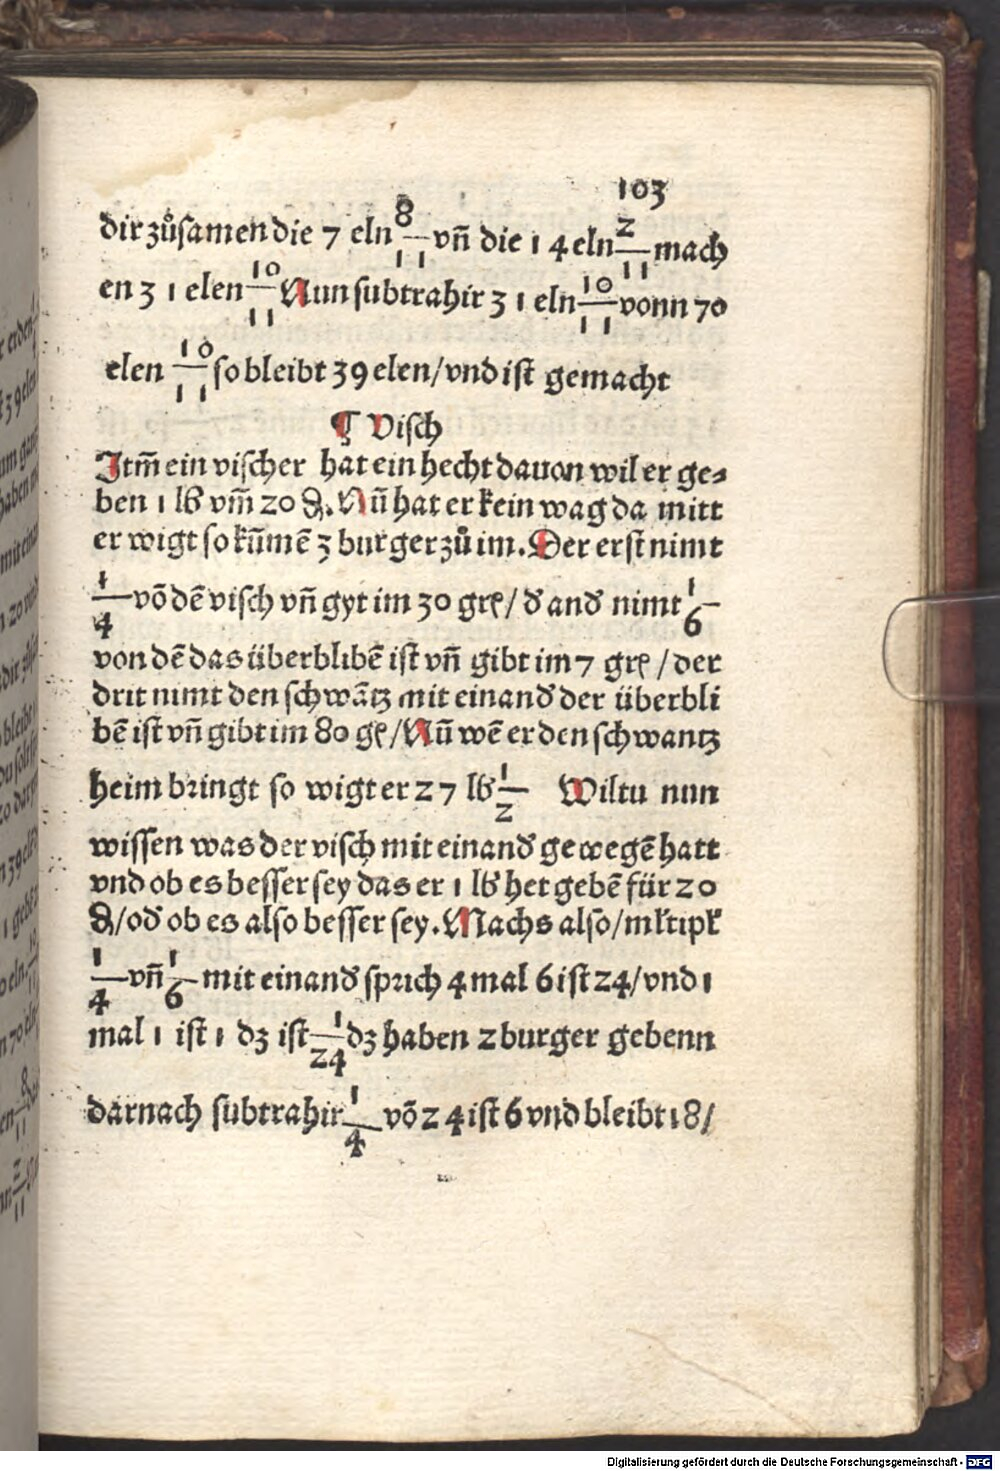 103
dir zůsamen die 7 eln 8/11 vn̄ die 14 eln 2/11 mach
en 31 elen 10/11 Nun subtrahir 31 eln 10/11 vonn 70
elen 10/11 so bleibt 39 elen/vnd ist gemacht
¶ Visch
Itm̄ ein vischer hat ein hecht dauon wil er ge⸗
ben 1 lb vm̄ 20 ₰. Nū hat er kein wag da mitt
er wigt so kūmē 3 burger zů im. Der erst nimt
1/4 vō dē visch vn̄ gyt im 30 grꝭ/ d̕ and̕ nimt 1/6
von dē das überblibē ist vn̄ gibt im 7 grꝭ /der
drit nimt den schwātz mit einand̕ der überbli
bē ist vn̄ gibt im 80 gꝭ/Nū wē er den schwantz
heim bringt so wigt er 27 lb 1/2 Wiltu nun
wissen was der visch mit einand̕ gewegē hatt
vnd ob es besser sey das er 1 lb het gebē für 20
₰/od̕ ob es also besser sey. Machs also/mltipl
1/4 vn̄ 1/6 mit einand̕ sprich 4 mal 6 ist 24/vnd 1
mal 1 ist 1 dz ist 1/24 dz haben 2 burger gebenn
darnach subtrahir 1/4 vō 24 ist 6 vnd bleibt 18/
Digitalisierung gefördert durch die Deutsche Forschungsgemeinschaft - DFG